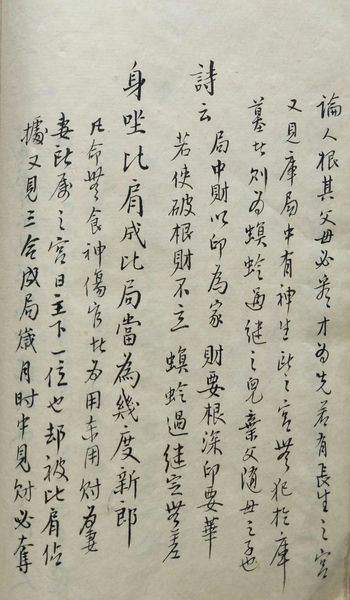 論人根其父母必才为先若有長生之宮
又見庫局中有神生此之宮無犯於庫
墓此则为螟蛉過继之兒棄父随母之子也
詩云 局中財以印為家 財要根深印要華
若使破根財不立 螟蛉過继定無差
身坐比肩成比局當為幾度新郎
凡命無食神傷官此为用用財为妻
妻此属之宮日主下一位也却被比肩佔
據又見三合成局歲月时中見财必奪